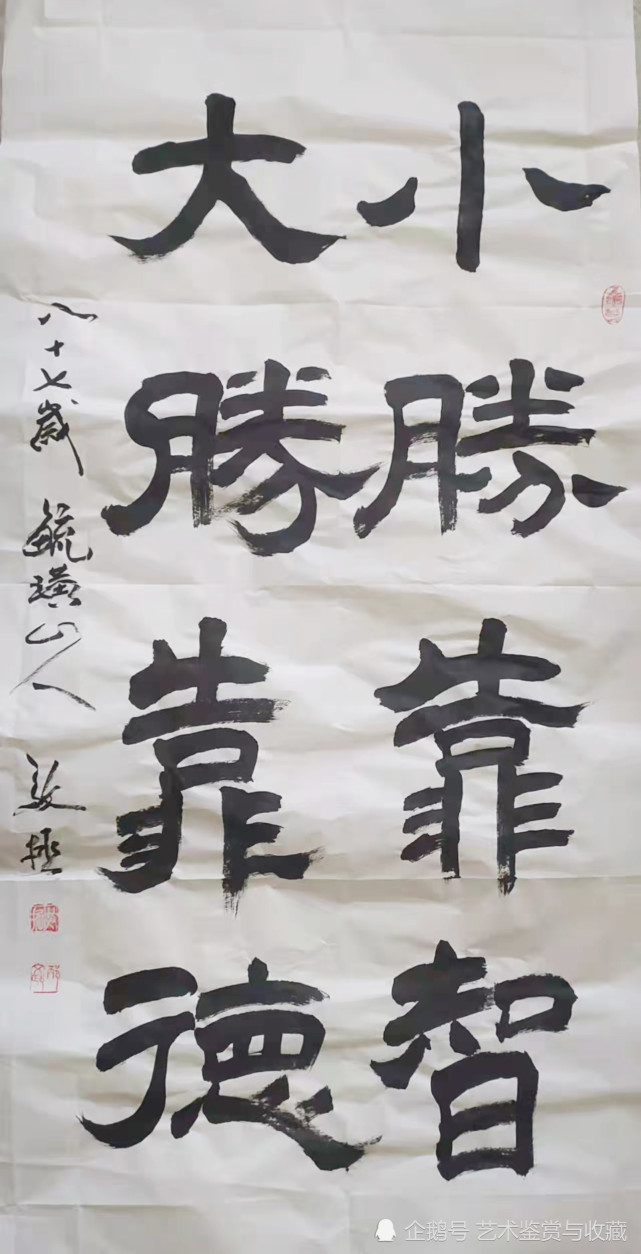 小勝靠智
大勝靠德
八十七歲 毓璜山人
企鹅号 艺术鉴赏与收藏